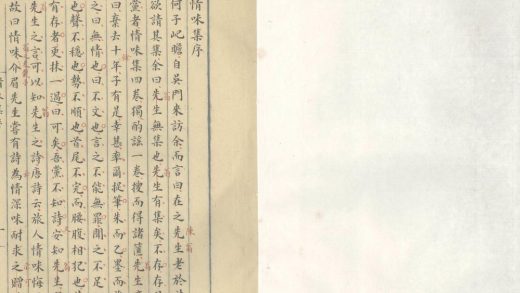 情味集序
何子屺瞻自吳門來訪余而言曰在之先生老於
欲請其集余曰先生無集也先生有集矣不存存
黨者情味集四卷獨酌謠一卷搜而得諸篋先生
曰棄去十年子有是幸甚率爾捉筆朱而乙墨而
之曰無情也曰不文也言之不能無罪聞之不足
也聲不穩也勢不順也首尾不完而腰腹相犯也
有存者更抹一過曰可矣吾黨不知詩安知先生
先生之言可以知先生之詩唐詩云旅人情味悔
故曰情味介眉先生嘗有詩為情深味耐求之贈